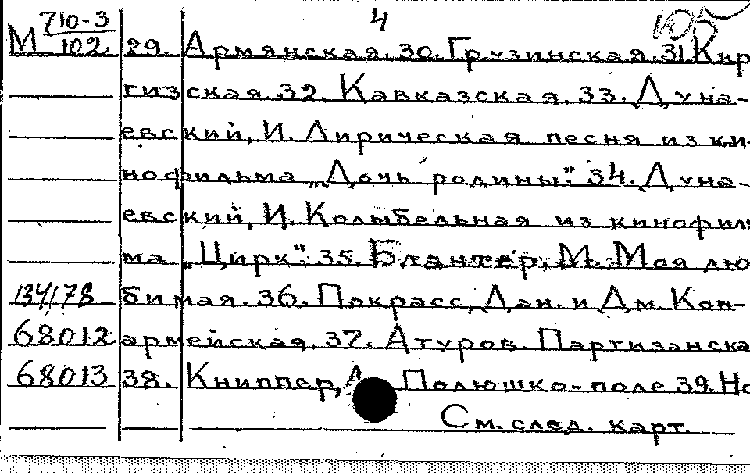 4
М 710-3/102 29. Армянская. 30. Грузинская. 31. Кир-
гизская. 32. Кавказская. 33. Дуна-
евский, И. Лирическая песня из ки-
нофильма „Дочь родины". 34. Дуна-
евский, И. Колыбельная из кинофиль
ма „Цирк". 35. Блантер, М. Моя лю
134178 бимая. 36. Покрасс, Дан. и Дм. Кон-
68012 армейская. 37. Атуров. Партизанска
68013 38. Книппер, Л. Полюшко-поле 39. Не
См. след. карт.